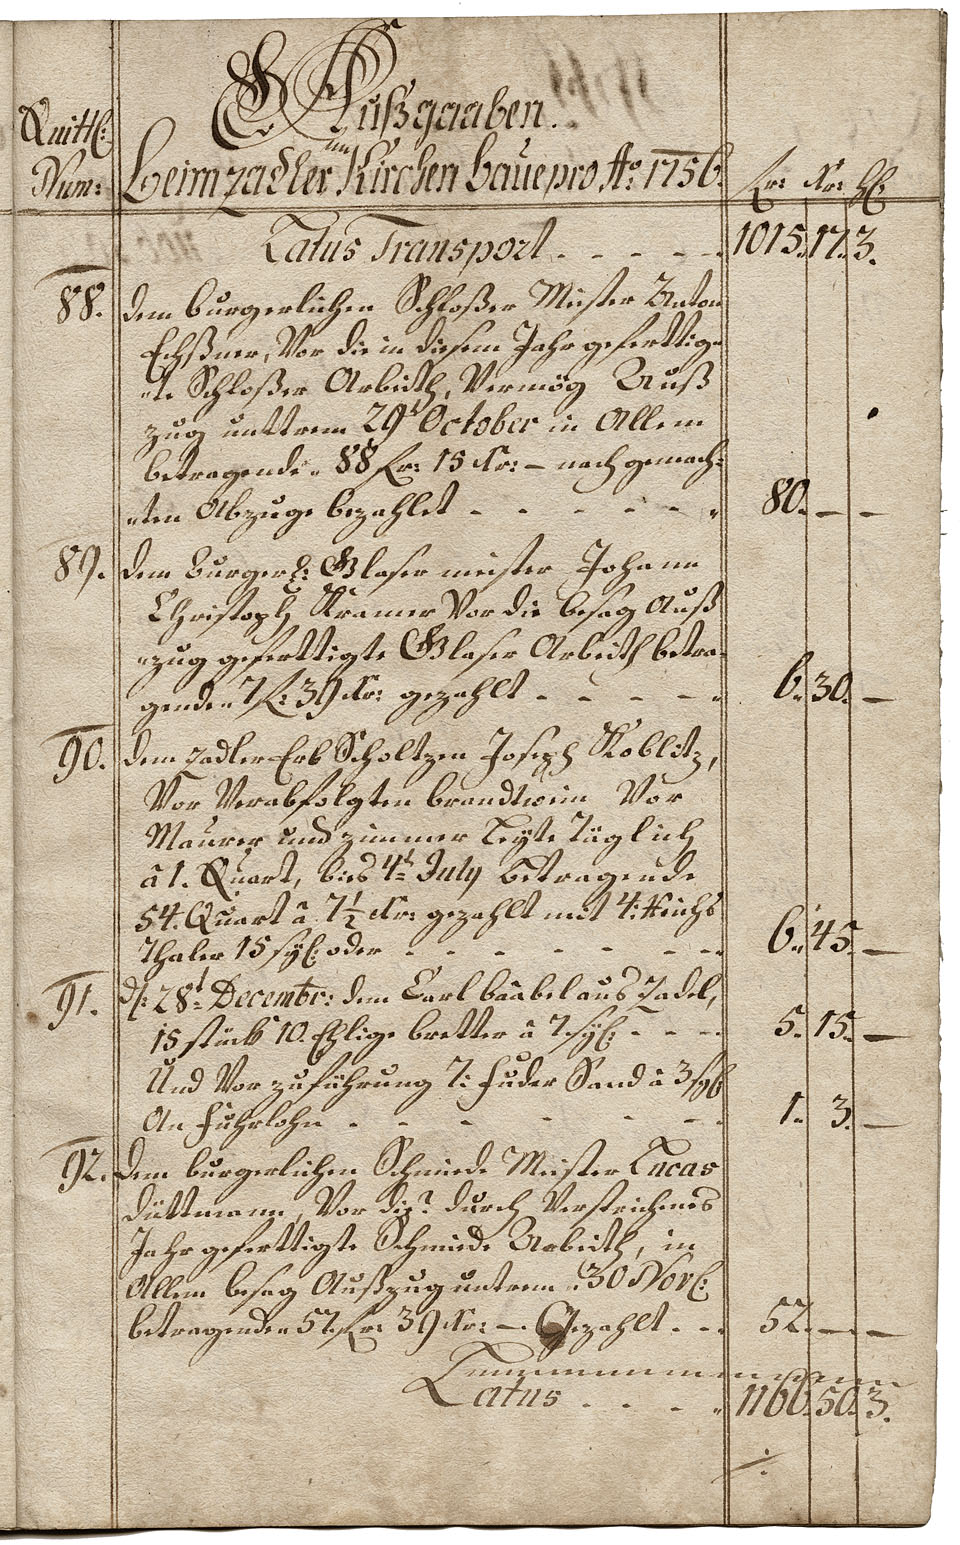 Außgaaben.
Quittl:
Num:
Beim Zadler Kirchen baue pro Ao: 1756.
fr: Kr: hl
Latus Transport. - - - - 1015. 17. 3.
88. dem burgerlichen Schloßer Meister Anton
Echßner, Vor die in diesem Jahr geferttig-
-te Schloßer Arbeith, Vermög Auß
zug unttrem 29t October in Allem
betragende 88 fr: 15 Kr: – nach gemach-
-ten Abzuge bezahlet - - - - - 80. – –
89. dem burgerl: Glaser meister Johann
Christoph Kramer Vor die besag Auß
-zug gefertttigte Glaser Arbeith betra-
genden 7 f: 39 Kr: gezahlt - - - - - 6. 30. –
90. dem zadler Erb Scholtzen Joseph Koblitz,
Vor Verabfolgten brandtwein Vor
Maurer und zimmer Leyte Täglich
â 1. Quart, bies 4t July betragende
54. Quart â 7½ Kr: gezahlt mit 4: Reichs
Thaler 15 sgl: oder - - - - - - 6. 45. –
91. d: 28t Decembr: dem Carl bäabel aus Zadel,
15 stück 10. Ehlige bretter â 7 sgl: - - - 5. 15. –
Und Vor zuführung 7: fuder Sand â 3 sgl
An fuhrlohn - - - - - - 1. 3. –
92. Dem burgerlichen Schmiede Meister Lucas
Düttmann, Vor die durch Verstrichenes
Jahr gefertttigte Schmiede Arbeith, in
Allem besag Außzug untrem 30 Novl:
betragenden 57 fr: 39 Kr: – Gezahlt - - - 52. – –
Latus . . . . 1166. 50. 3.
./.